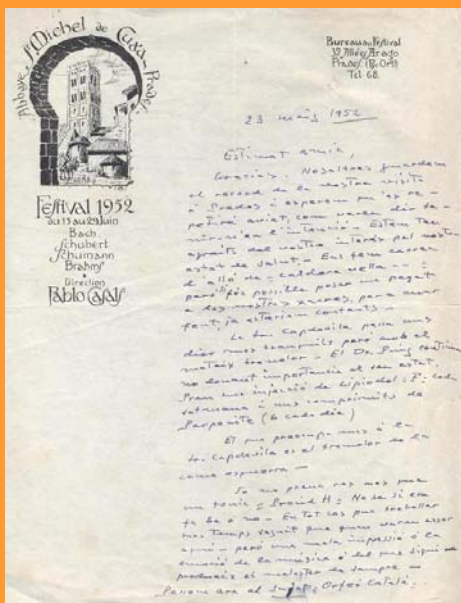 Abbaye St Michel de Cuxa - Prades
Festival 1952
du 15 au 29 Juin
Bach
Schubert
Schumann
Brahms
Direction
Pablo Casals
Bureau du Festival
Prades (P.-Orles)
Tel 68.
23 maig 1952
Estimat amic,
Gracies. Nosaltres guardem
el record de la vostra visita
a Prades i esperem
aviat, com varen dir
l'intenció - Estem
agraits del vostre interès pel nostre
estat de salut -
d'allò de caldera vella -
possible posar un pegat
a les nostres xacres, però anar
fent, ja estariem contents -
La Sra. Capdevila passa uns
dies mes tranquils però amb el
mateix tremolor - El Dr. Puig continua
no donant importancia al seu estat.
Pren una injecció de Lipiodol
setmana i uns comprimits de
Parpanite (6 cada dia)
El que preocupa mes a la
Sra. Capdevila es el tremolor de la
cama esquerra -
Jo no prenc res mes que
un tonic: No se si em
fa be o no - En tot cas puc treballar
mes temps seguit que quan varen esser
aqui - però una mala impressió o la
emoció de la música o del que sigui em
produeix el malestar de sempre -
Passem ara al Orfeó Català.